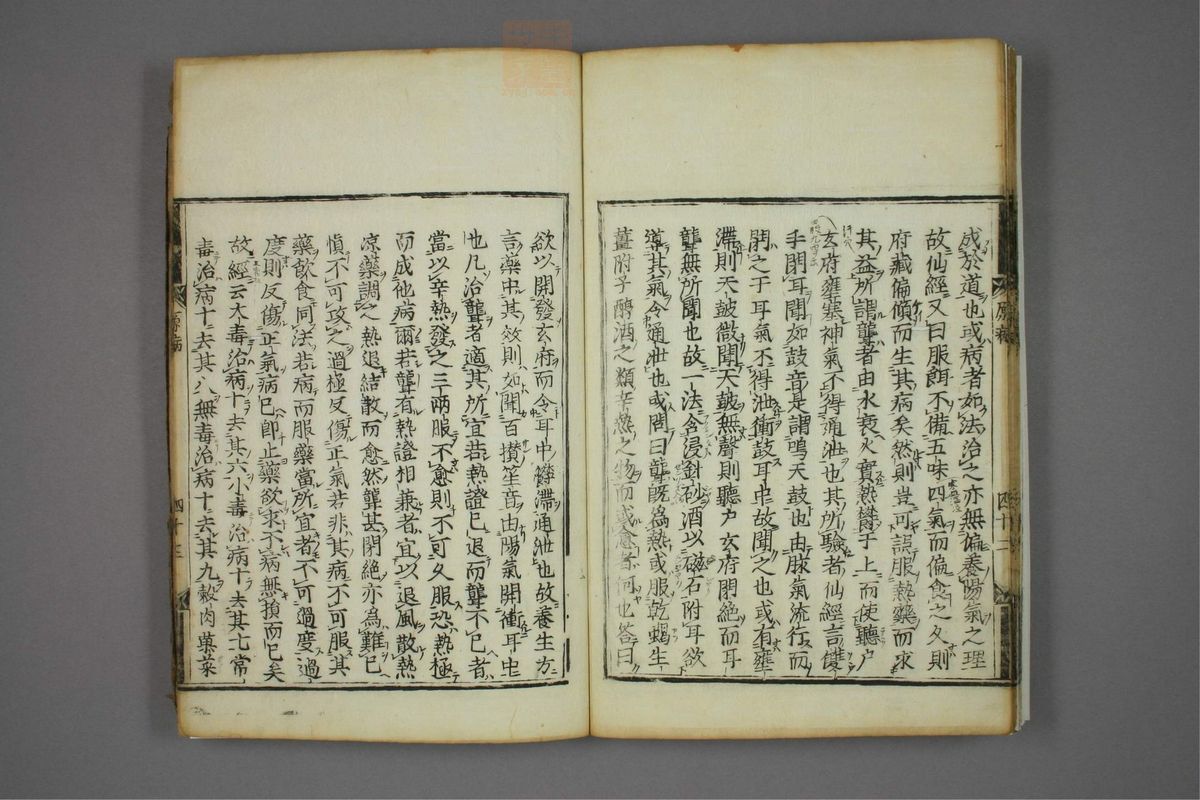 成於道也或病者如法治之亦無偏養陽氣之理
故仙經又曰服餌不備五味四氣而偏食之久則
府藏偏傾而生其病矣然則豈可誤服熱藥而求
其益所謂聾者由水衰火實熱鬱于上而使聽户
玄府壅塞神氣不得通泄也其所驗者仙經言雙
手閉耳聞如鼓音是謂鳴天鼓也由脉氣流行而
閉之于耳氣不得泄衝鼓耳中故聞之也或有壅
滯則天鼓微聞天鼓無聲則聽户玄府閉絕而耳
聾無所聞也故一法含浸針砂酒以磁石附耳欲
導其氣令通泄也或問曰聾既爲熱或服乾蝎生
薑附子醇酒之類辛熱之物而或愈者何也答曰
原病
四十二
欲以開發玄府而令耳中欝滯通泄也故養生方
言藥中其效則如開百攅笙音由陽氣開衝耳中
也凡治聾者適其所宜若熱證已退而聾不已者
當以辛熱發之三兩服不愈則不可久服恐熱極
而成他病爾若聾有熱證相兼者宜以退風散熱
凉藥調之熱退結散而愈然聾甚閉絕亦為難已
慎不可攻之過極反傷正氣若非其病不可服其
藥飲食同法若病而服藥當所宜者不可過度過
度則反傷正氣病已卽止藥欲求不病無損而已矣
故經云大毒治病十去其六小毒治病十去其七常
毒治病十去其八無毒治病十去其九穀肉菓菜
原病
四十三